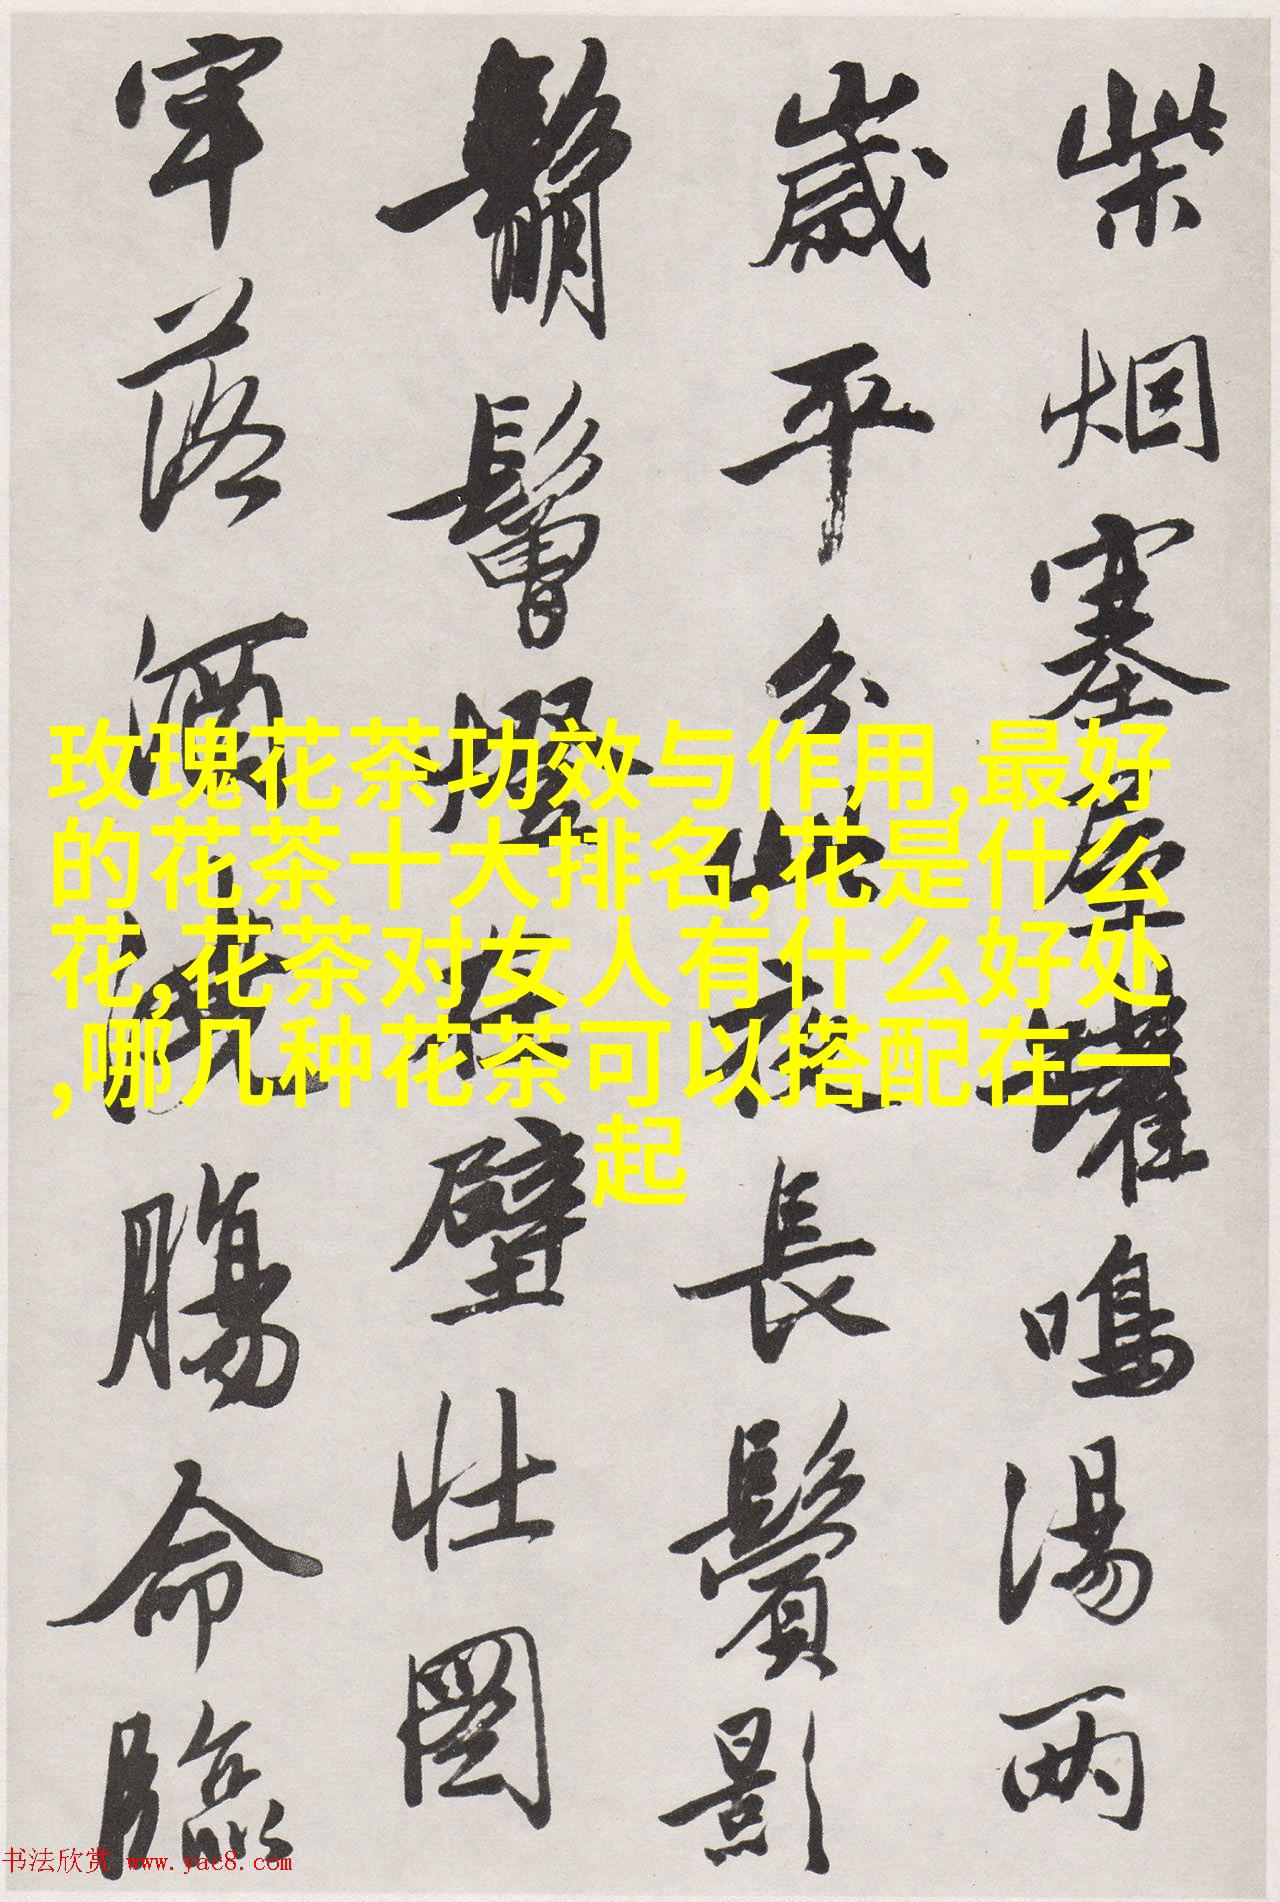 柴烟塞屋罐鸣汤两
歲平分此夜長鬢影
鬅鬙壁壮图
牢落酒澆腸命臨
玫瑰花茶功效与作用,最好
的花茶十大排名,花是什么
花,花茶对女人有什么好处
,哪几种花茶可以搭配在一
起
书法欣赏 www.yac8.com